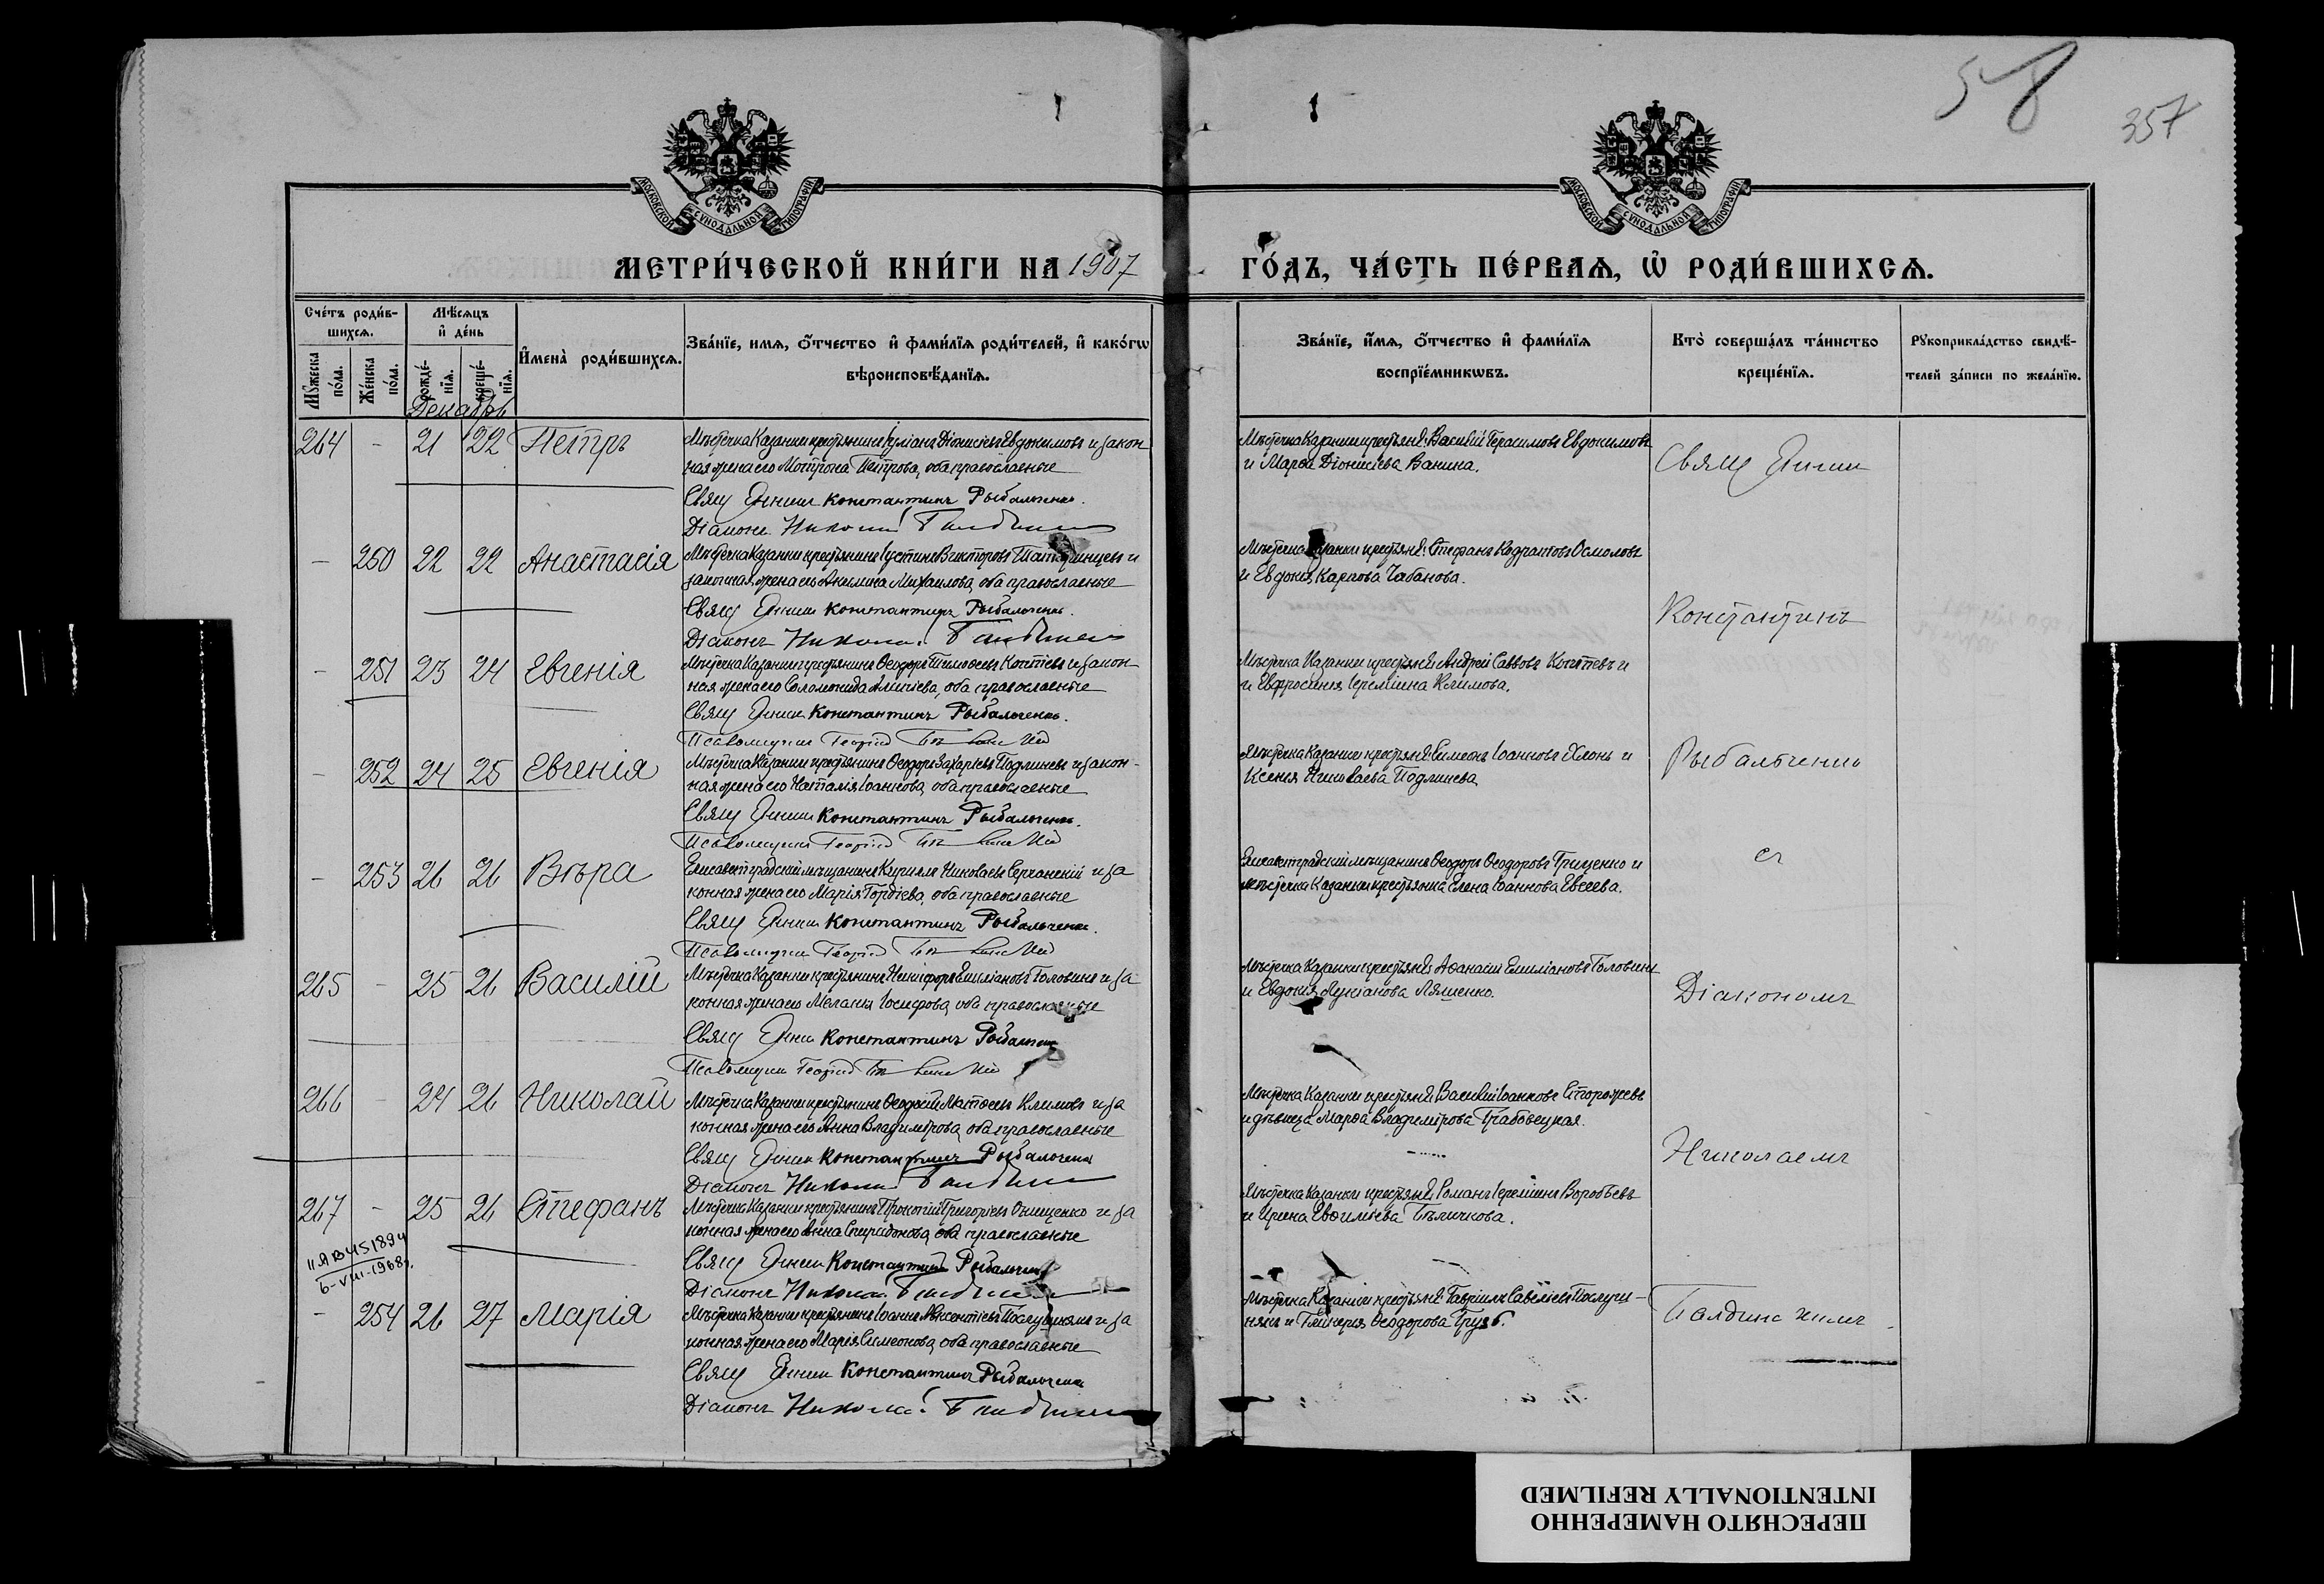 58
357
МОСКОВСКОЙ СѴНОДАЛЬНОЙ ТИПОГРАФІИ
МОСКОВСКОЙ СѴНОДАЛЬНОЙ ТИПОГРАФІИ
МЕТРИ́ЧЕСКОЙ КНИ́ГИ НА 1907
ГО́ДЪ, ЧА́СТЬ ПЕ́РВАѦ, Ѡ҆ РОДИ́ВШИХСѦ.
Сче́тъ роди́в-
шихсѧ.
Мѣ́сѧцъ
и҆ де́нь
Мꙋ́жеска
по́ла.
Же́нска
по́ла.
рожде́-
нїѧ.
креще́-
нїѧ.
И҆мена̀ роди́вшихсѧ.
Зва́нїе, имѧ, о҆́тчество и҆ фами́лїѧ роди́телей, и҆ како́гѡ
вѣроисповѣ́данїѧ.
Зва́нїе, и҆́мѧ, о҆́тчество и҆ фами́лїѧ
воспрїе́мникѡвъ.
Кто̀ соверша́лъ та́инство
креще́нїѧ.
Рꙋкоприкла́дство свидѣ́-
телей за́писи по жела́нїю.
Декабрь
264 - 21 22 Петръ
Мѣстечка Казанки крестьянинъ Іуліанъ Діонисіевъ Евдокимовъ и закон
ная жена его Мотрона Петрова, оба православные
Свящ Константинъ Рыбальченко.
Діаконъ Николай
Мѣстечка Казанки крестьяне: Василій Герасимовъ Евдокимовъ
и Марѳа Діонисіева Ванина.
Свящ
- 250 22 22 Анастасія
Мѣстечка Казанки крестьянинъ Іустинъ Викторовъ и
законная жена его Акилина Михаилова, оба православные
Свящ Константинъ Рыбальченко.
Діаконъ Николай
Мѣстечка Казанки крестьяне: Стефанъ Кодратовъ Осмоловъ
и Евдокія Карпова Чабанова.
Константинъ
- 251 23 24 Евгенія
Мѣстечка Казанки крестьянинъ Ѳеодоръ Тимоѳеевъ Коптевъ и закон-
ная жена его Соломонида Алипіева, оба православные
Свящ Константинъ Рыбальченко.
Псаломщикъ Георгій
Мѣстечка Казанки крестьяне: Андрей Саввовъ Коптевъ и
и Евфросинія Іереміина Климова.
- 252 24 25 Евгенія
Мѣстечка Казанки крестьянинъ Ѳеодоръ Захаріевъ Подлиневъ и закон-
ная жена его Наталія Іоаннова, оба православные
Свящ Константинъ Рыбальченко.
Псаломщикъ Георгій
Мѣстечка Казанки крестьяне: Симеонъ Іоанновъ Хлонь и
Ксенія Николаева Подлинева
Рыбальченко
- 253 26 26 Вѣра
Елисаветградскій мѣщанинъ Кириллъ Николаевъ и за
конная жена его Марія Гордіева, оба православные
Свящ Константинъ Рыбальченко.
Псаломщикъ Георгій
Елисаветградскій мѣщанинъ Ѳеодоръ Ѳеодоровъ Гриценко и
мѣстечка Казанки крестьянка Елена Іоаннова Евсеева.
съ
265 - 25 26 Василій
Мѣстечка Казанки крестьянинъ Никифоръ Емиліановъ Головинъ и за
конная жена его Меланія Іосифова, оба православные
Свящ Константинъ
Псаломщикъ Георгій
Мѣстечка Казанки крестьяне: Аѳанасій Емиліановъ Головинъ
и Евдокія Лукіанова Ляшенко.
Діакономъ
266 - 24 26 Николай
Мѣстечка Казанки крестьянинъ Ѳеодосій Матѳеевъ Климовъ и за
конная жена его Анна Владимірова, оба православные
Свящ Константинъ Рыбальченко
Діаконъ Николай
Мѣстечка Казанки крестьяне: Василій Іоанновъ Сторожевъ
и дѣвица Марѳа Владимірова Грабовецкая.
Николаемъ
267 - 25 26 Стефанъ
Мѣстечка Казанки крестьянинъ Прокопій Григорьевъ Онищенко и за
конная жена его Анна Спиридонова, оба православные
Свящ Константинъ
Діаконъ Николай
Мѣстечка Казанки крестьяне: Романъ Іереміинъ Воробьевъ
и Ирина Евѳиміева Бѣличкова.
II ЯВ 451894
6-VIII-1968г.
- 254 26 27 Марія
Мѣстечка Казанки крестьянинъ Іоаннъ Авксентіевъ Послушнякъ и за
конная жена его Марія Симеонова, оба православные
Свящ Константинъ Рыбальченко
Діаконъ Николай
Мѣстечка Казанки крестьяне: Гавріилъ Савеліевъ Послуш-
някъ и Гликерія Ѳеодорова
ПЕРЕСНЯТО НАМЕРЕННО
INTENTIONALLY REFILMED